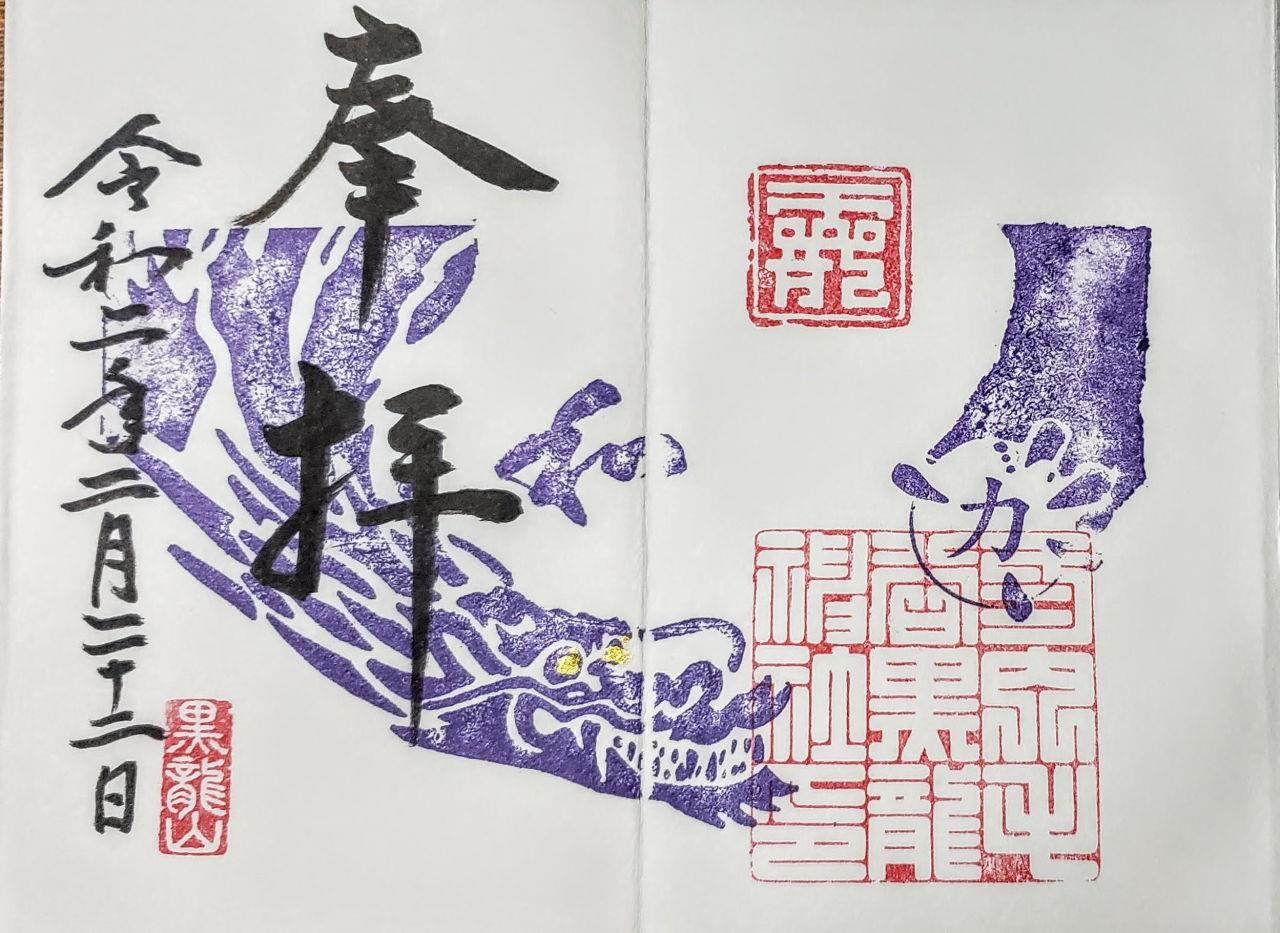 龗
カ
黒龍
神社印
奉拝
令和二年二月二十二日
黒龍山